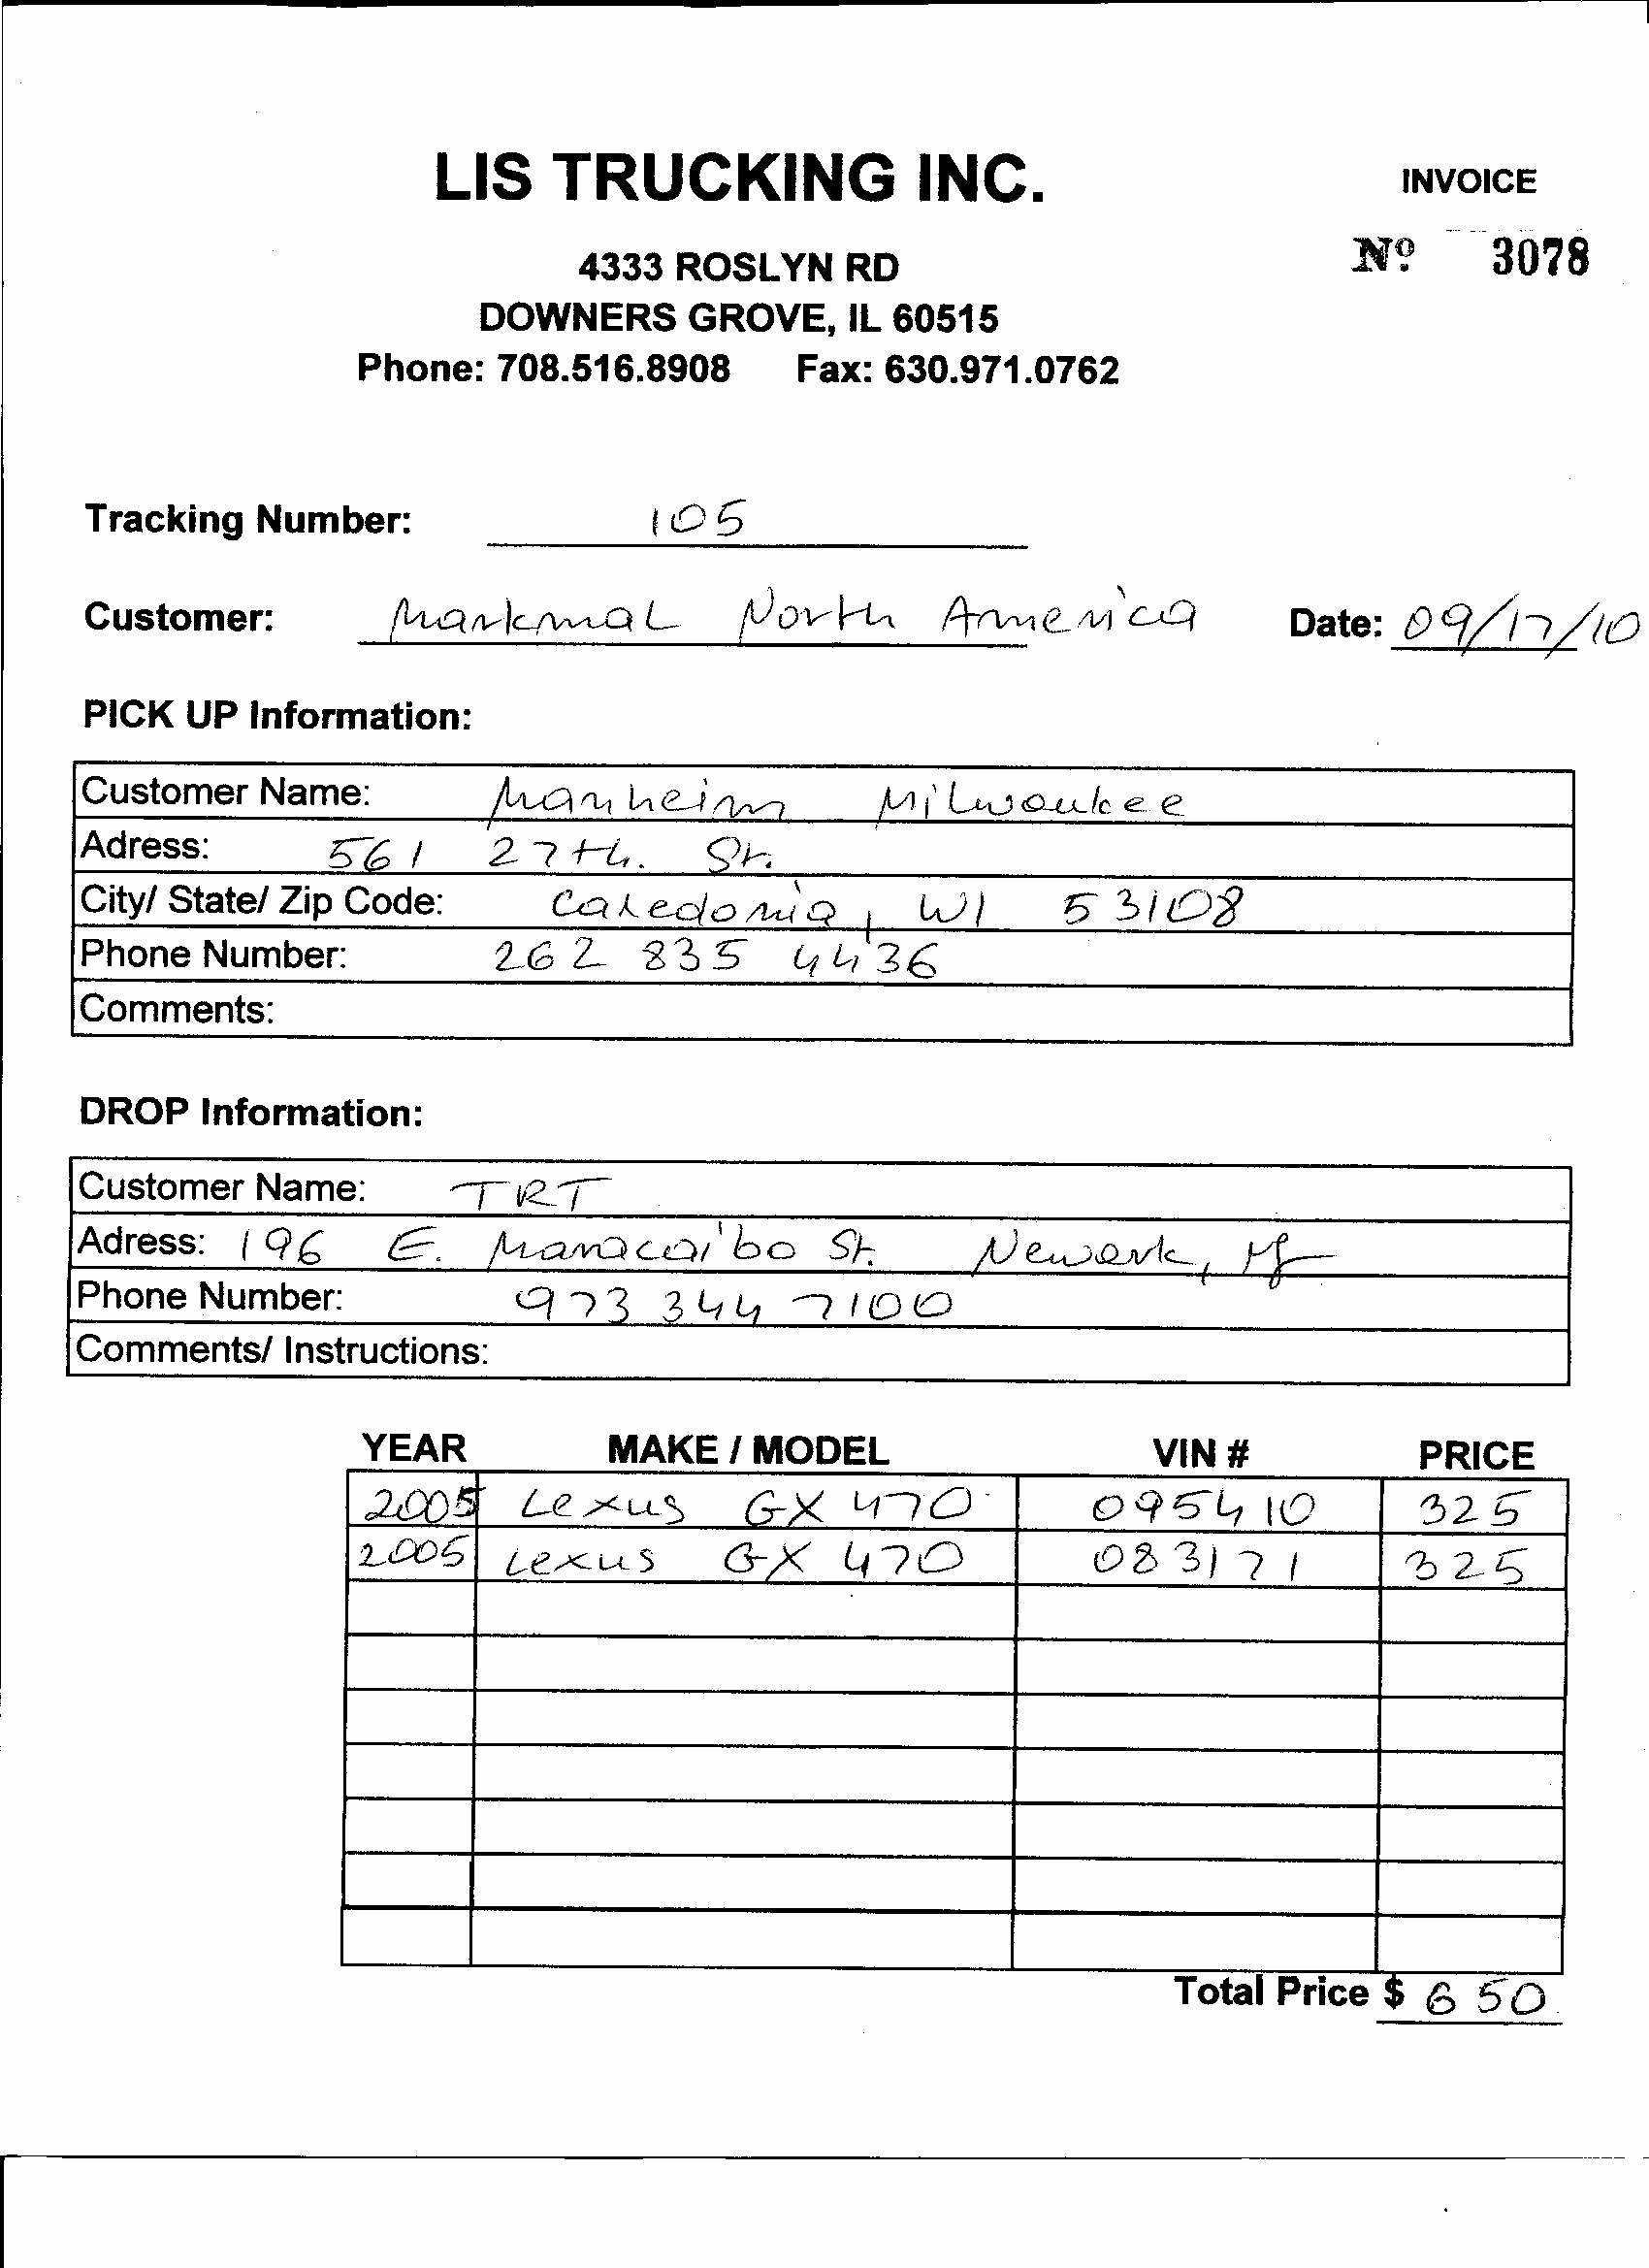 LIS TRUCKING INC.
INVOICE
4333 ROSLYN RD
Nº 3078
DOWNERS GROVE, IL 60515
Phone: 708.516.8908 Fax: 630.971.0762
Tracking Number: 105
Customer: Markmal North America Date: 09/17/10
PICK UP Information:
Customer Name: Manheim Milwaukee
Adress: 561 27th. St.
City/ State/ Zip Code: Caledonia, WI 53108
Phone Number: 262 835 4436
Comments:
DROP Information:
Customer Name: TRT
Adress: 196 E. Maracaibo St. Newark, NJ
Phone Number: 973 344 7100
Comments/ Instructions:
YEAR MAKE / MODEL VIN # PRICE
2005 Lexus GX 470 095410 325
2005 Lexus GX 470 083171 325
Total Price $ 650